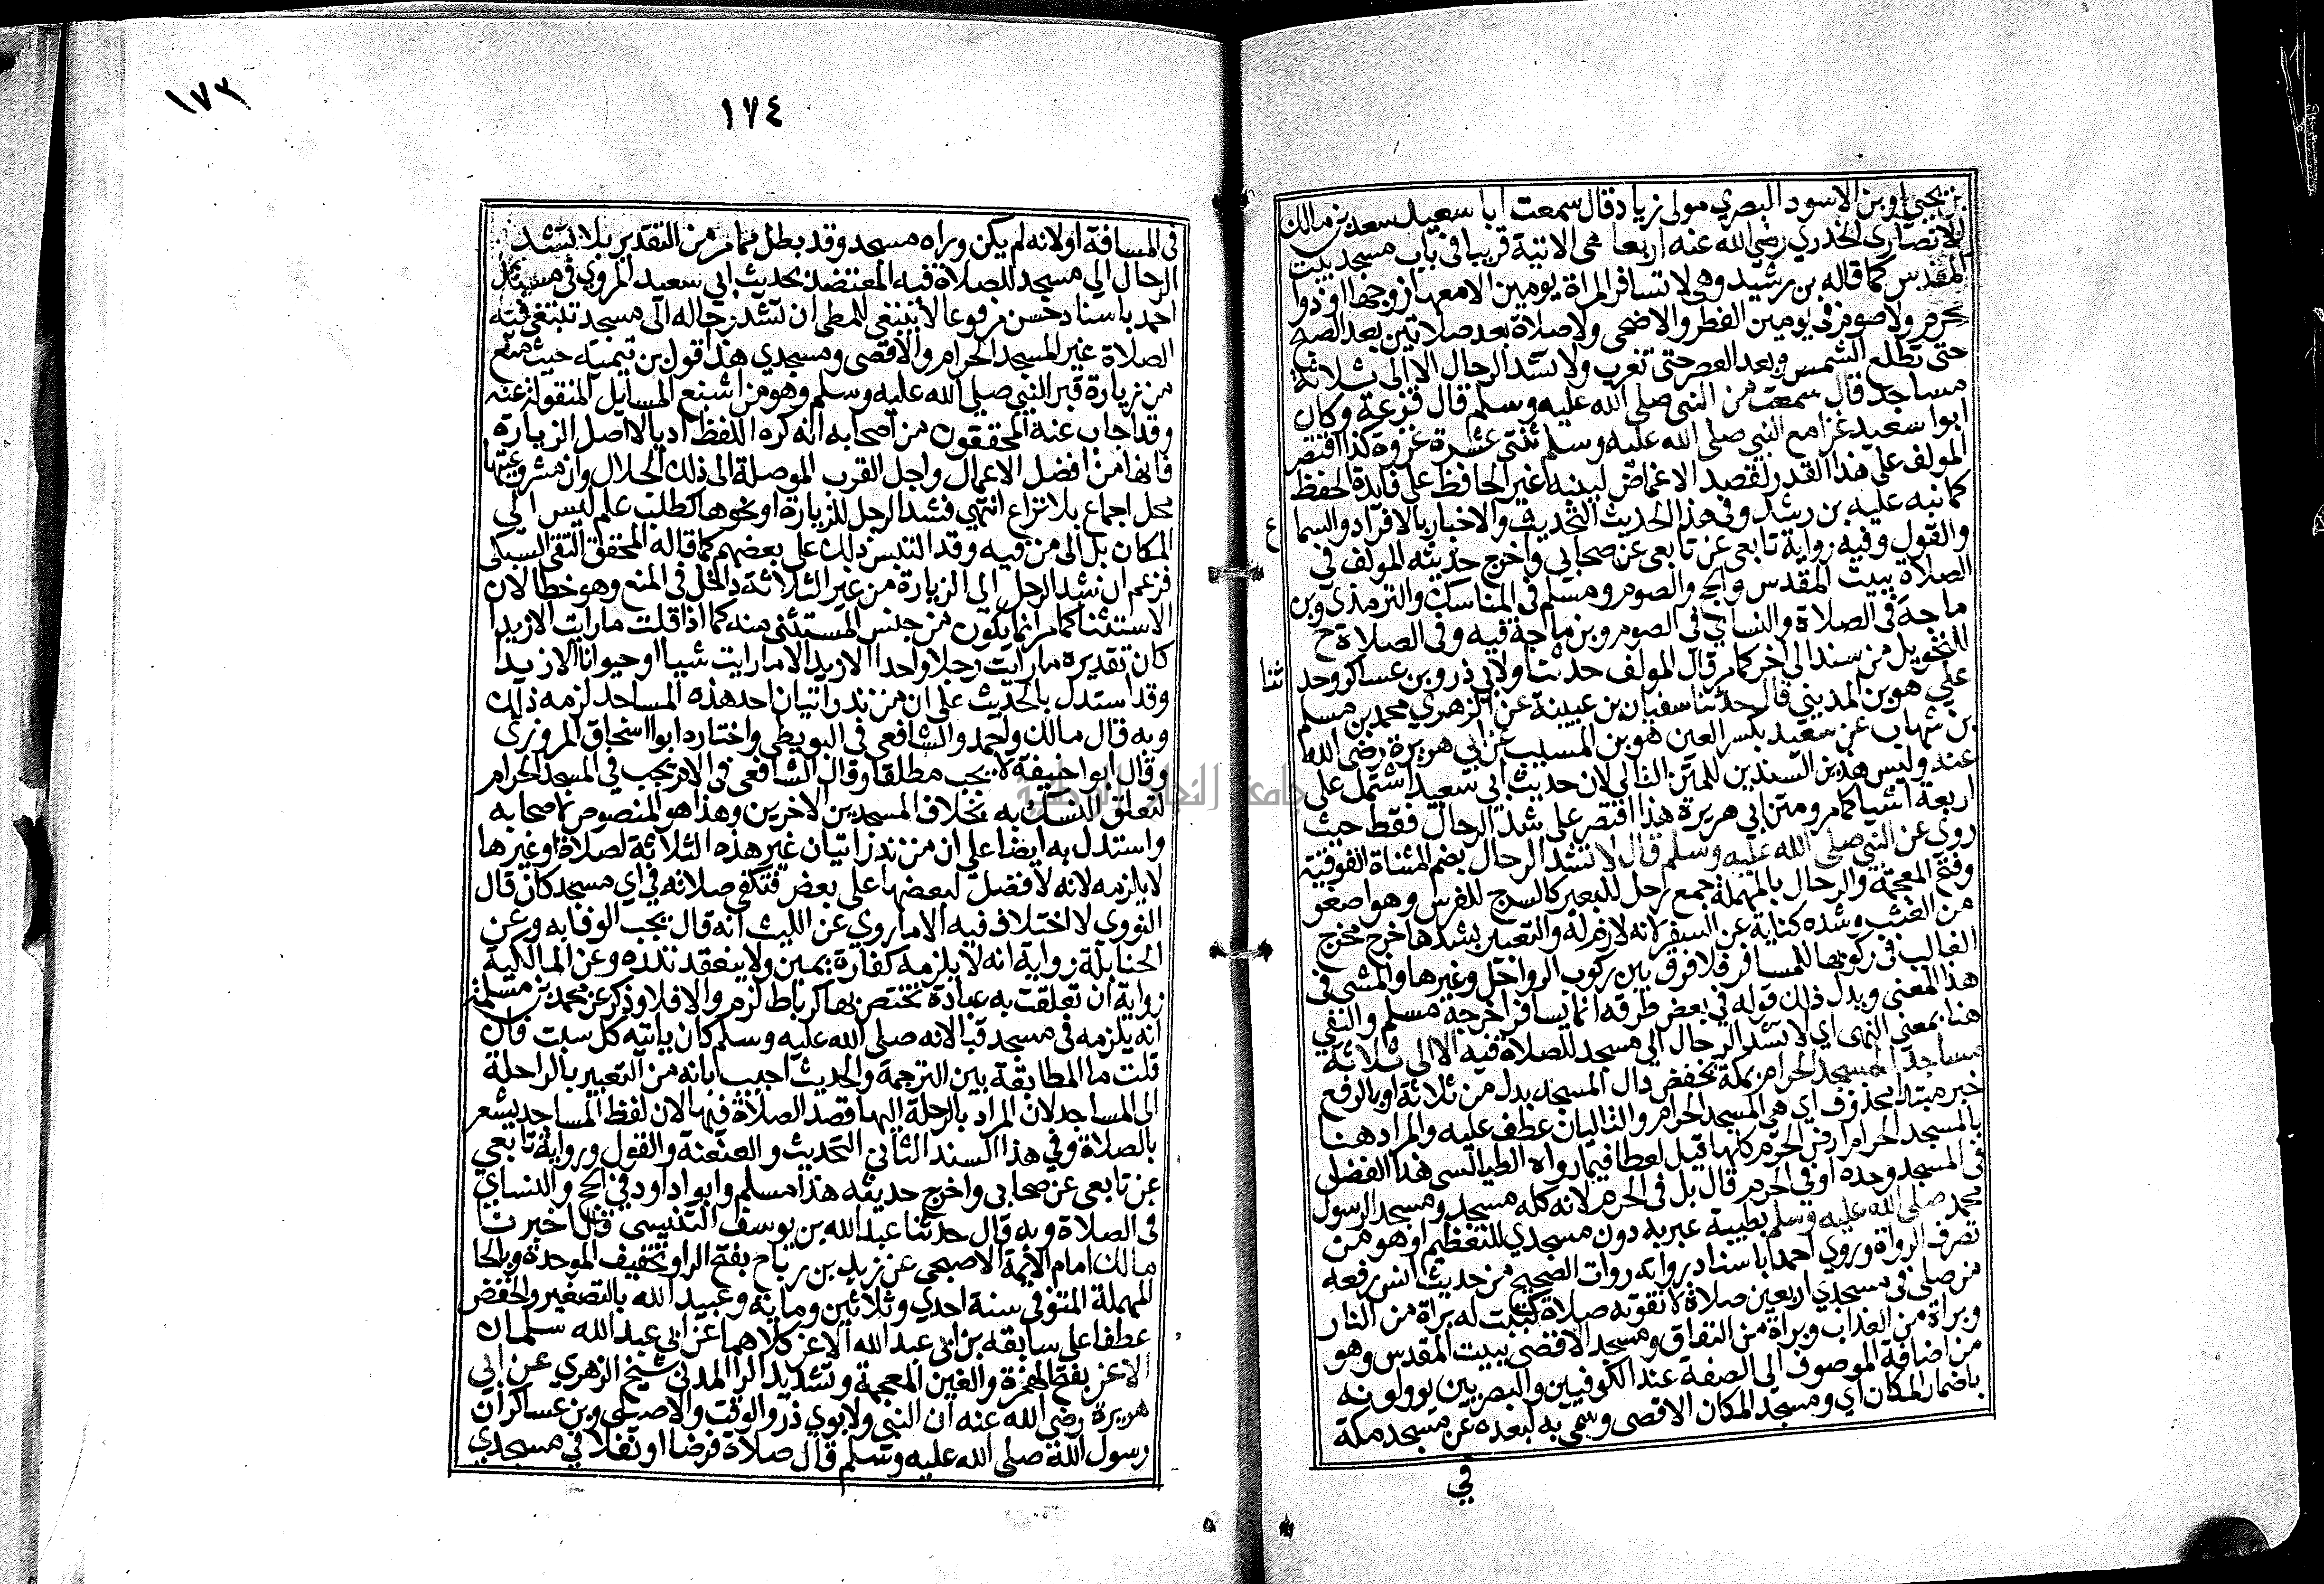 بن يحيى او بن الاسود البصري مولى زياد قال سمعت ابا سعيد سعد بن مالك
الانصاري الخدري رضي الله عنه اربعا هي الاتية قريبا في باب مسجد بيت
المقدس كما قاله بن رشيد وهي لا تسافر المراة يومين الا معها زوجها او ذوا
محرم ولا صوم في يومين الفطر والاضحى ولا صلاة بعد صلاتين بعد الصبح
حتى تطلع الشمس وبعد العصر حتى تغرب ولا تشد الرحال الا الى ثلاثة
مساجد قال سمعت من النبي صلى الله عليه وسلم قال قزعة وكان
ابوا سعيد غزا مع النبي صلى الله عليه وسلم ثنتى عشرة غزوة كذا اقتصر
المولف على هذا القدر لقصد الاغماض لينبه غير الحافظ على فايدة الحفظ
كما نبه عليه بن رشد وفي هذا الحديث التحديث والاخبار بالافراد والسما
ع
والقول وفيه رواية تابعي عن تابعي عن صحابي واخرج حديثه المولف في
الصلاة ببيت المقدس والحج والصوم ومسلم في المناسك والترمذي وبن
ماجة في الصلاة والنسائي في الصوم وبن ماجة فيه وفي الصلاة ح
للتحويل من سند الى اخر كما مر قال المولف حدثنا ولابي ذر وبن عساكر وحد
ثنا
علي هو بن المديني قال حدثنا سفيان بن عيينة عن الزهري محمد بن مسلم
بن شهاب عن سعيد بكسر العين هو بن المسيب عن ابي هريرة رضي الله
عنه وليس هذين السندين للمتن التالي لان حديث ابي سعيد اشتمل على
اربعة اشيا كما مر ومتن ابي هريرة هذا اقتصر على شد الرحال فقط حيث
روى عن النبي صلى الله عليه وسلم قال لا تشد الرحال بضم المثناة الفوقية
وفتح المعجمة والرحال بالمهملة جمع رحل للبعير كالسرج للفرس وهو اصغر
من القتب وشده كناية عن السفر لانه لازم له والتعبير بشدها خرج مخرج
الغالب في ركوبها للمسافر فلا فرق بين ركوب الرواحل وغيرها والمشي في
هذا المعنى ويدل ذلك قوله في بعض طرقه انما يسافر اخرجه مسلم والنفي
هنا بمعنى النهي اي لا تشد الرحال الى مسجد للصلاة فيه الا الى ثلاثة
مساجد المسجد الحرام بمكة بخفض دال المسجد بدل من ثلاثة او بالرفع
خبر مبتدا محذوف اي هي المسجد الحرام والتاليان عطف عليه والمراد هنا
بالمسجد الحرام ارض الحرم كلها قيل لعطا فيما رواه الطيالسي هذا الفضل
في المسجد وحده او في الحرم قال بل في الحرم لانه كله مسجد ومسجد الرسول
محمد صلى الله عليه وسلم بطيبة عبر به دون مسجدي للتعظيم او هو من
تصرف الرواة وروي احمد باسناد رواته روات الصحيح من حديث انس رفعه
من صلى في مسجدي اربعين صلاة لا تفوته صلاة كتبت له براة من النار
وبراة من العذاب وبراة من النفاق ومسجد الاقصى ببيت المقدس وهو
من اضافة الموصوف الى الصفة عند الكوفيين والبصريين يوولونه
باضمار المكان اي ومسجد المكان الاقصى وسمي به لبعده عن مسجد مكة
في
١٧٣
١٧٤
في المسافة او لانه لم يكن وراه مسجد وقد بطل بما مر من التقدير بلا تشد
الرحال الى مسجد للصلاة فيه المعتضد بحديث ابي سعيد المروي في مسند
احمد باسناد حسن مرفوعا لا ينبغي للمطي ان تشد رحاله الى مسجد تبتغي فيه
الصلاة غير المسجد الحرام والاقصى ومسجدي هذا قول بن تيمية حيث منع
من زيارة قبر النبي صلى الله عليه وسلم وهو من اشنع المسايل المنقولة عنه
وقد اجاب عنه المحققون من اصحابه انه كره اللفظ ادبا لا اصل الزيارة
فانها من افضل الاعمال واجل القرب الموصلة الى ذلك الجلال وان مشروعيتها
محل اجماع بلا نزاع انتهى فشد الرحل للزيارة او نحوها كطلب علم ليس الى
المكان بل الى من فيه وقد التبس ذلك على بعضهم كما قاله المحقق التقي السبكي
فزعم ان شد الرحل الى الزيارة من غير الثلاثة داخل في المنع وهو خطا لان
الاستثنا كما مر انما يكون من جنس المستثنى منه كما اذا قلت ما رايت الا زيدا
كان تقديره ما رايت رجلا واحدا الا زيدا لا ما رايت شيا او حيوانا الا زيدا
وقد استدل بالحديث على ان من نذر اتيان احد هذه المساجد لزمه ذلك
وبه قال مالك واحمد والشافعي في البويطي واختاره ابوا اسحاق المروزي
وقال ابوا حنيفة لا يجب مطلقا وقال الشافعي في الام يجب في المسجد الحرام
لتعلق النسك به بخلاف المسجدين الاخرين وهذا هو المنصوص لاصحابه
واستدل به ايضا على ان من نذر اتيان غير هذه الثلاثة لصلاة او غيرها
لا يلزمه لانه لا فضل لبعضها على بعض فتكفى صلاته في اي مسجد كان قال
النووي لا اختلاف فيه الا ما روي عن الليث انه قال يجب الوفا به وعن
الحنابلة رواية انه لا يلزمه كفارة يمين ولا ينعقد نذره وعن المالكية
رواية ان تعلقت به عبادة تختص بها كرباط لزم والا فلا وذكر عن محمد بن مسلمة
انه يلزمه في مسجد قبا لانه صلى الله عليه وسلم كان ياتيه كل سبت فان
قلت ما المطابقة بين الترجمة والحديث اجيب بانه من التعبير بالراحلة
الى المساجد لان المراد بالرحلة اليها قصد الصلاة فيها لان لفظ المساجد يشعر
بالصلاة وفي هذا السند الثاني التحديث والعنعنة والقول ورواية تابعي
عن تابعي عن صحابي واخرج حديثه هذا مسلم وابوا داود في الحج والنساي
في الصلاة وبه قال حدثنا عبد الله بن يوسف التنيسي قال اخبرنا
مالك امام الائمة الاصبحي عن زيد بن رباح بفتح الرا وتخفيف الموحدة وبالحا
المهملة المتوفى سنة احدي وثلاثين ومايه وعبيد الله بالتصغير والخفض
عطفا على سابقه بن ابي عبد الله الاغر كلاهما عن ابي عبد الله سلمان
الاغر بفتح الهمزة والغين المعجمة وتشديد الرا المدني شيخ الزهري عن ابي
هريرة رضي الله عنه ان النبي ولابوي ذر والوقت والاصيلي وبن عساكر ان
رسول الله صلى الله عليه وسلم قال صلاة فرضا او نفلا في مسجدي